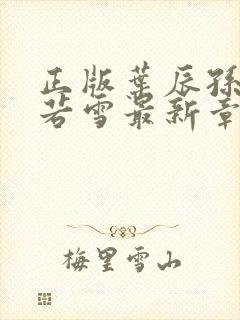 正版葉辰孫
若雪最新章
梅里雪山